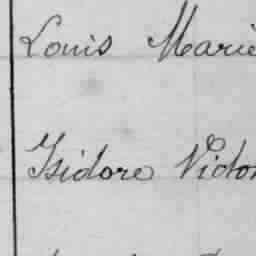 Louis Marie
Isidore Victor